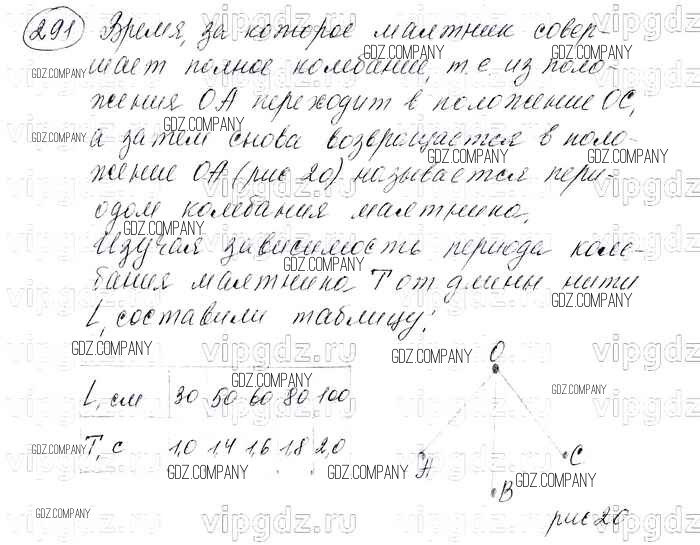 291 Время, за которое маятник совер-
шает полное колебание, т.е. из поло-
жения ОА переходит в положение ОС,
а затем снова возвращается в поло-
жение ОА (рис 20) называется пери-
одом колебания маятника.
Изучая зависимость периода коле-
бания маятника T от длины нити
L, составили таблицу:
L, см 30 50 60 80 100
T, с 1,0 1,4 1,6 1,8 2,0
O
A
C
B
рис 20
GDZ.COMPANY
vipgdz.ru